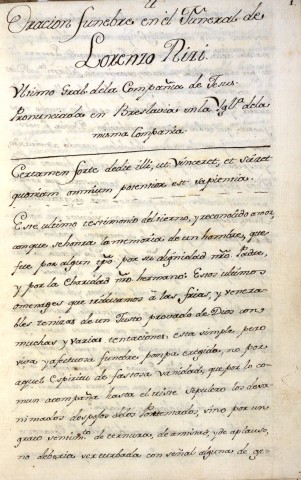 Oracion funebre en el Funeral de
Lorenzo Rizi.
Ultimo Gral. dela Compañia de Jesus.
Pronunciada en Breslavia en la Yglª. dela
misma Compañia.
Certamen forte dedit illi, ut vinceret, et sciret
quoniam omnium potentior est sapientia.
Este ultimo testimonio del tierno, y reconocido amor,
con que se honra la memoria de un hombre, que
fue por algun tpô. por su dignidad nrô. Padre,
y por la Charidad nrô. hermano: Estos ultimos
omenages que tributamos â las frias, y venera-
bles cenizas de un Justo provado de Dios con
muchas y varias tentaciones: esta simple, pero
viva y afectuosa funebre pompa erigida, no por
aquel Espiritu de fastosa vanidad, que por lo co-
mun acompaña hasta el triste sepulcro los desa-
nimados despojos delos Potentados, sino por un
grato sentimtô. de ternura, de animas, y de aplauso,
no deberia ser turbada con señal alguna de ge-